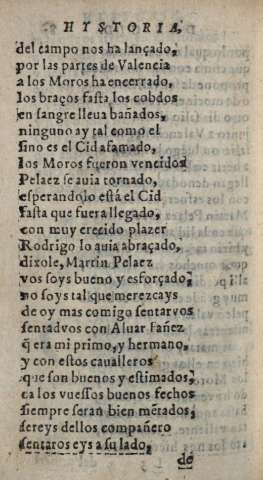 HYSTORIA,
del campo nos ha lançado,
por las partes de Valencia
a los Moros ha encerrado,
los braços fasta los cobdos
en sangre lleua bañados,
ninguno ay tal como el
sino es el Cid afamado,
los Moros fueron vencidos
Pelaez se auia tornado,
esperandolo està el Cid
fasta que fuera llegado,
con muy crecido plazer
Rodrigo lo auia abraçado,
dixole, Martin Pelaez
vos soys bueno y esforçado,
no soys tal que merezcays
de oy mas comigo sentarvos
sentadvos con Aluar Fañez
q̃ era mi primo, y hermano,
y con estos caualleros
que son buenos y estimados,
ca los vuessos buenos fechos
siempre seran bien mẽrados,
sereys dellos compañero
sentaros eys a su lado,
de